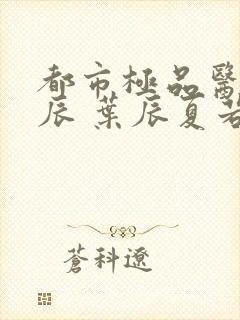 都市極品醫
辰 葉辰夏若
蒼科遼